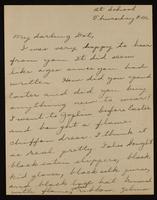 At School
Thursday P.M.
My darling Dot,
I was very happy to hear
from you. It did seem
like ages since you had
written. How did you spend
Easter and did you buy
anything new to wear?
I went to Joplin before Easter
and bought a
chiffon dress. I think it
is real pretty. Also bought
black satin slippers, black
kid gloves, black silk purse,
and black hat